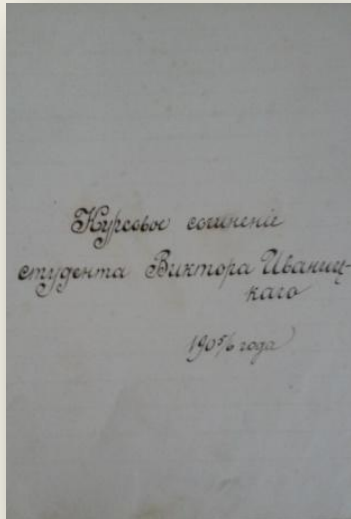 Курсовое сочиненіе
студента Виктора Иваниц-
каго
190⁵/₆ года